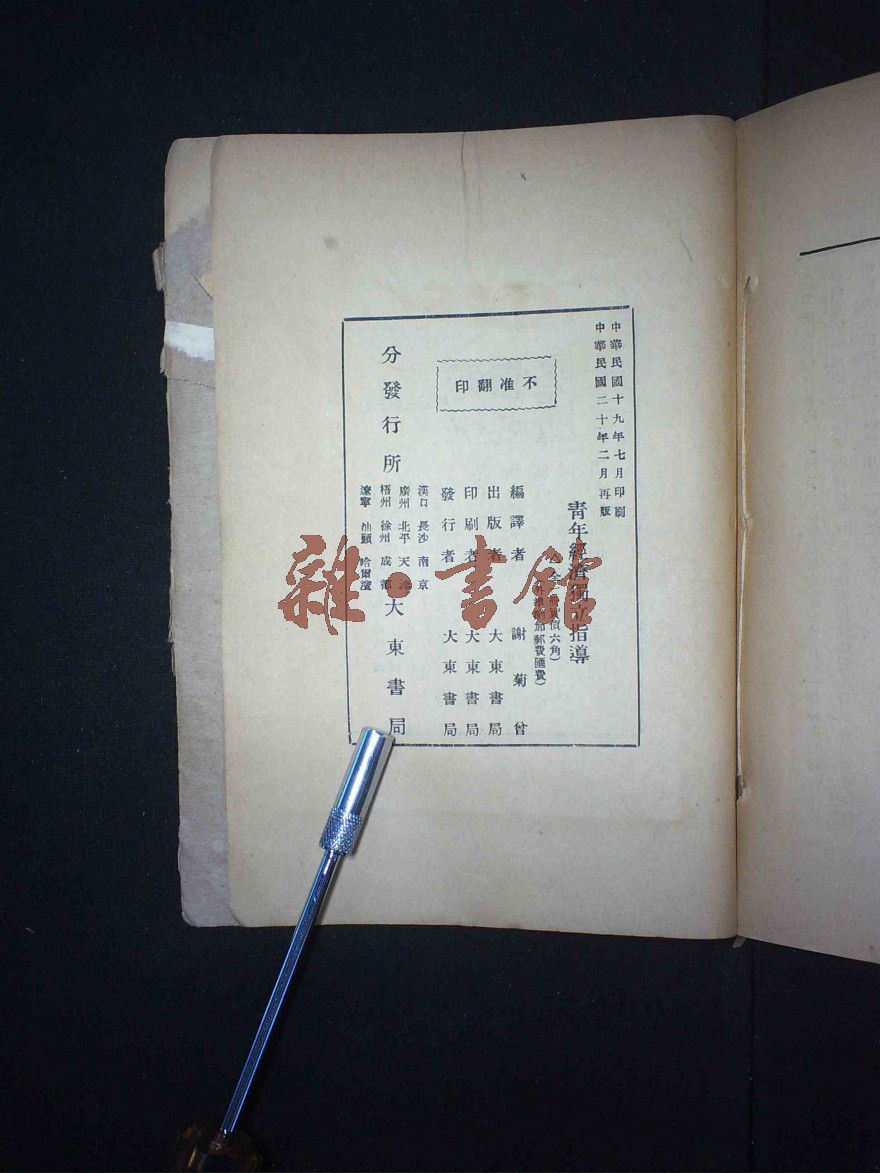 中華民國十九年七月印刷
中華民國二十年二月再版
青年經濟獨立指導
價六角）
加郵費匯費）
不准翻印
編譯者 謝菊曾
出版者 大東書局
印刷者 大東書局
發行者 大東書局
漢口 長沙 南京
廣州 北平 天津
梧州 徐州 成都
遼寧 汕頭 哈爾濱
分發行所 大東書局
雜·書館